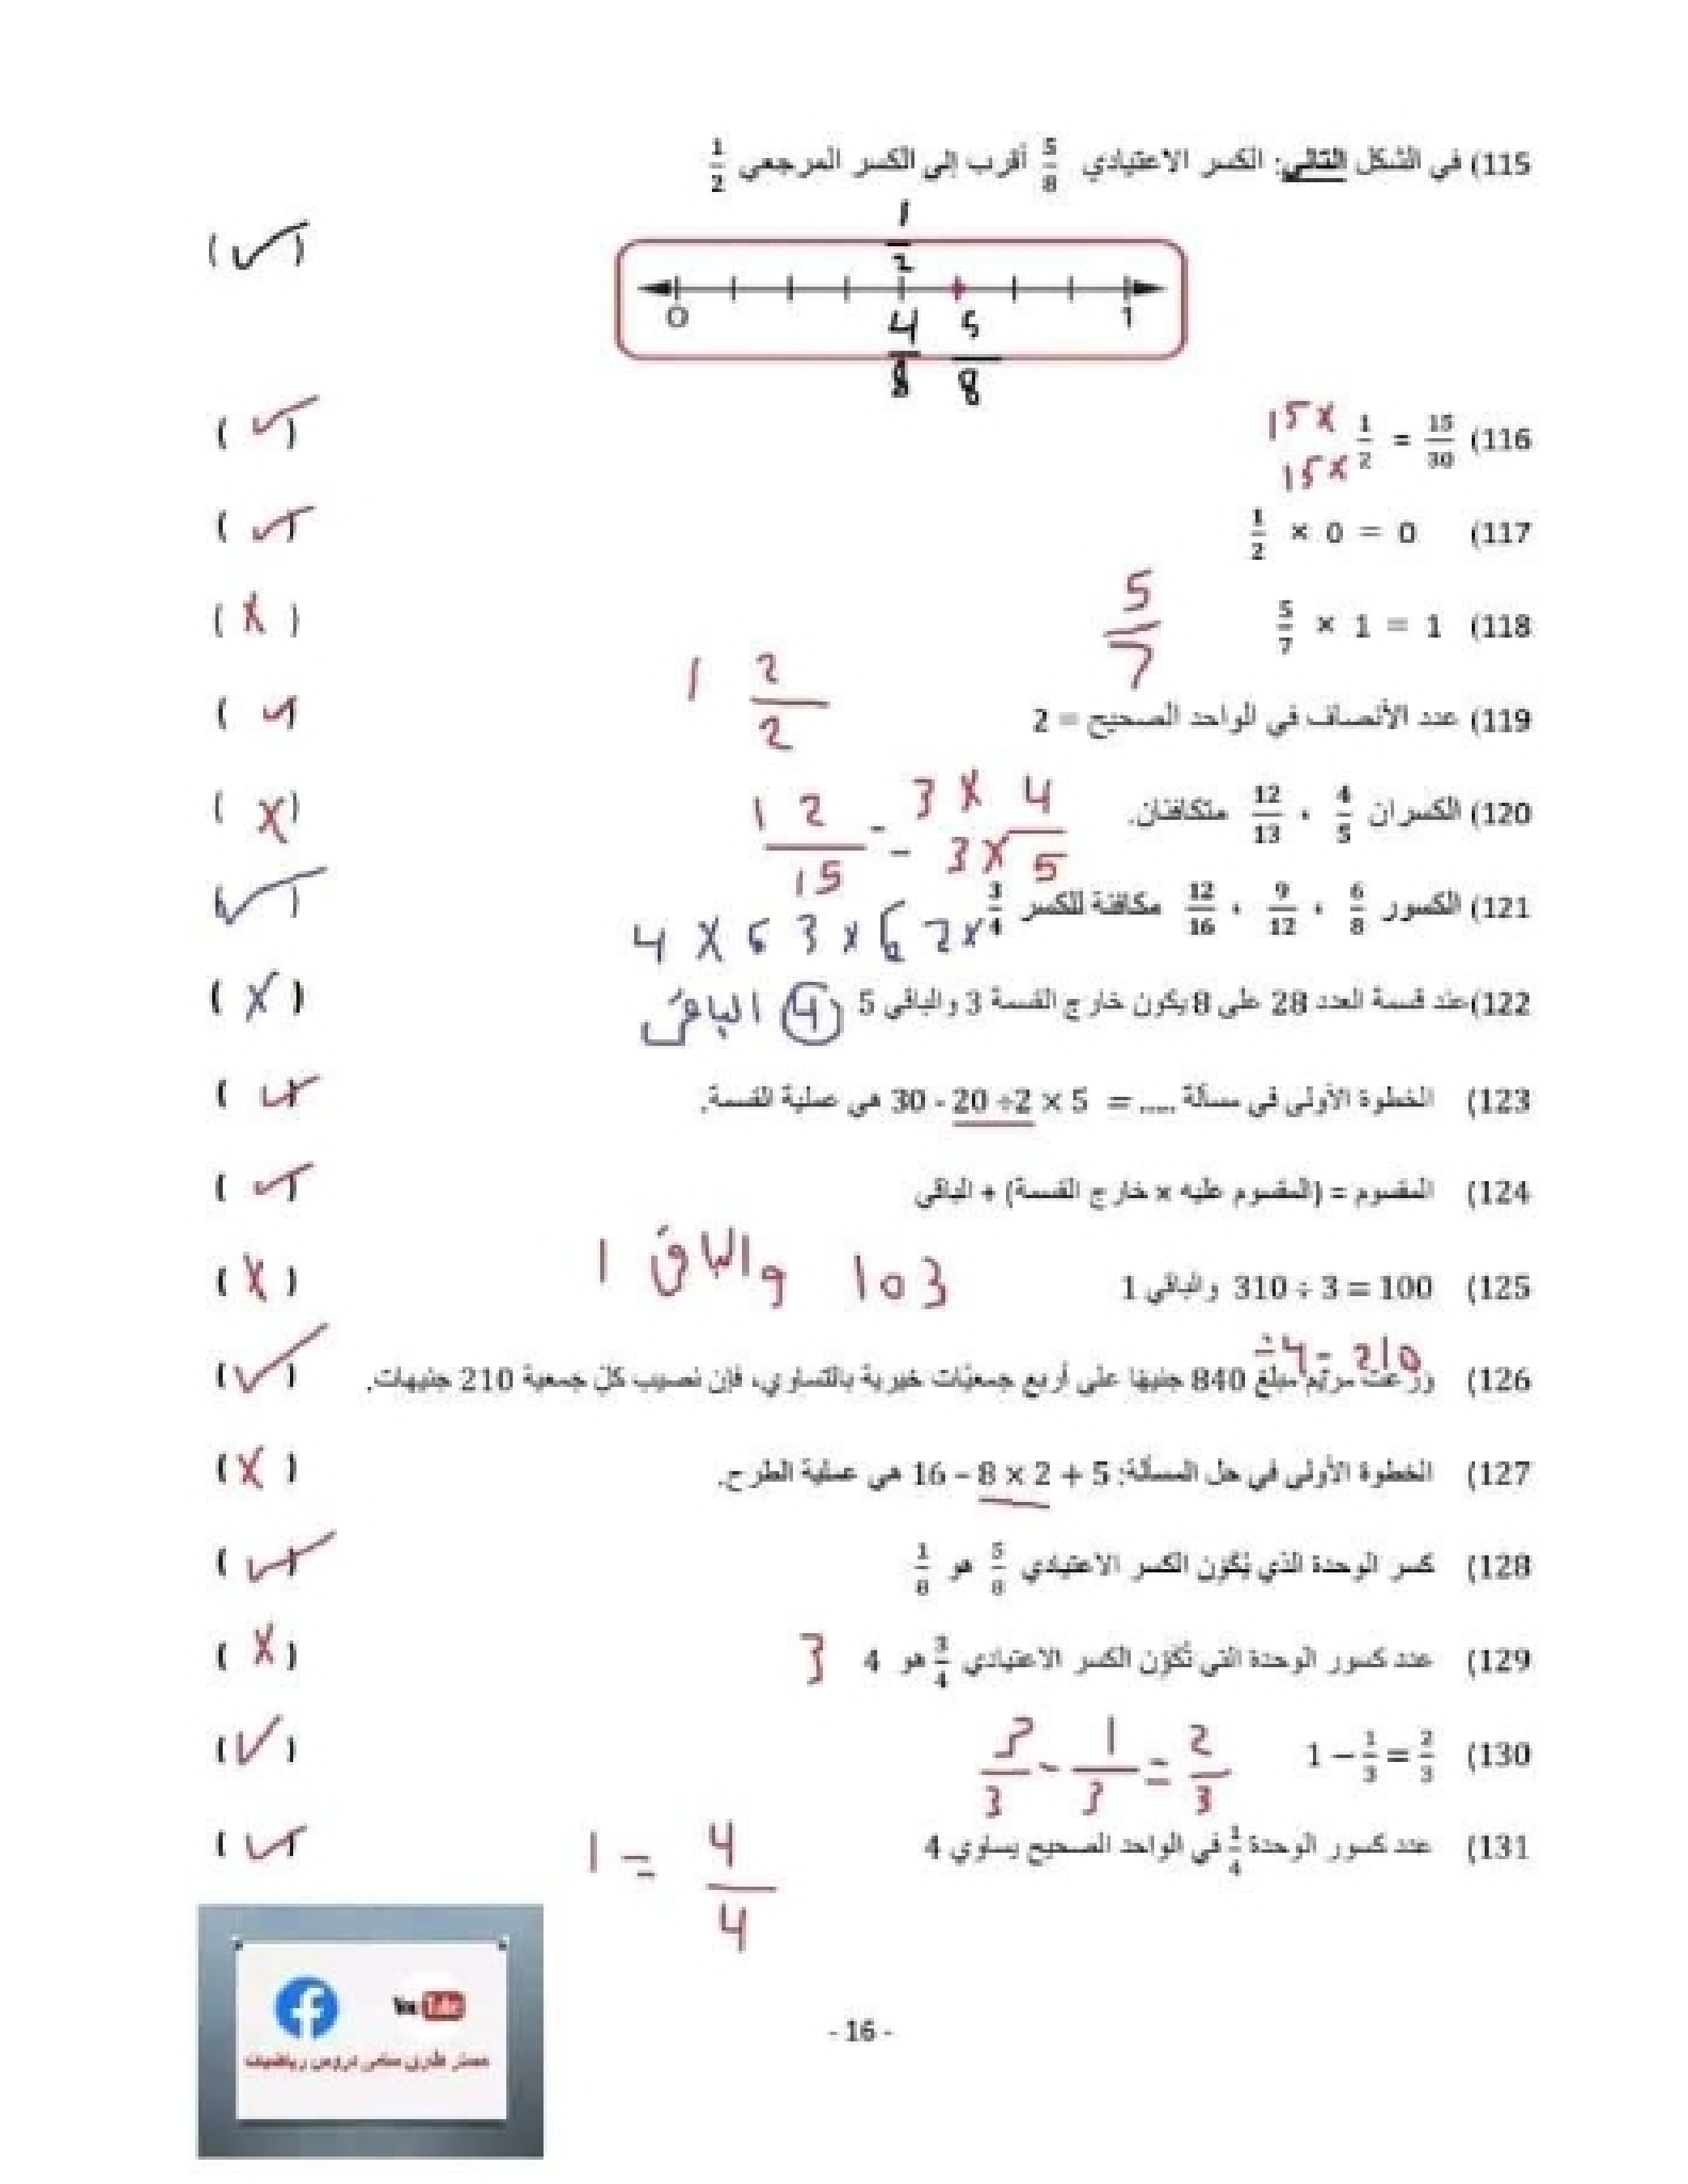 115) في الشكل التالي: الكسر الاعتيادي 5/8 أقرب إلى الكسر المرجعي 1/2
(✓)
1/2
0 1
4/8 5/8
116) 15/30 = 1/2 15× 15× (✓)
117) 1/2 × 0 = 0 (✓)
118) 5/7 × 1 = 1 5/7 (X)
119) عدد الأنصاف في الواحد الصحيح = 2 1 2/2 (✓)
120) الكسران 4/5 ، 12/13 متكافئان. 12/15 = 3×4/3×5 (X)
121) الكسور 6/8 ، 9/12 ، 12/16 مكافئة للكسر 3/4 (✓)
4 × 6 3 × 6 2×
122) عند قسمة العدد 28 على 8 يكون خارج القسمة 3 والباقي 5 4 الباقى (X)
123) الخطوة الأولى في مسألة ..... = 30 - 20 ÷2 × 5 هي عملية القسمة. (✓)
124) المقسوم = (المقسوم عليه × خارج القسمة) + الباقي (✓)
125) 310 ÷ 3 = 100 والباقي 1 103 والباقى 1 (X)
÷4 = 210
126) وزعت مريم مبلغ 840 جنيهًا على أربع جمعيّات خيرية بالتساوي، فإن نصيب كلّ جمعية 210 جنيهات. (✓)
127) الخطوة الأولى في حل المسألة: 16 – 8 × 2 + 5 هي عملية الطرح. (X)
128) كسر الوحدة الذي يُكوّن الكسر الاعتيادي 5/8 هو 1/8 (✓)
129) عدد كسور الوحدة التي تُكوّن الكسر الاعتيادي 3/4 هو 4 3 (X)
130) 1 – 1/3 = 2/3 3/3 - 1/3 = 2/3 (✓)
131) عدد كسور الوحدة 1/4 في الواحد الصحيح يساوي 4 1 = 4/4 (✓)
You Tube
مستر طارق سامى دروس رياضيات
- 16 -